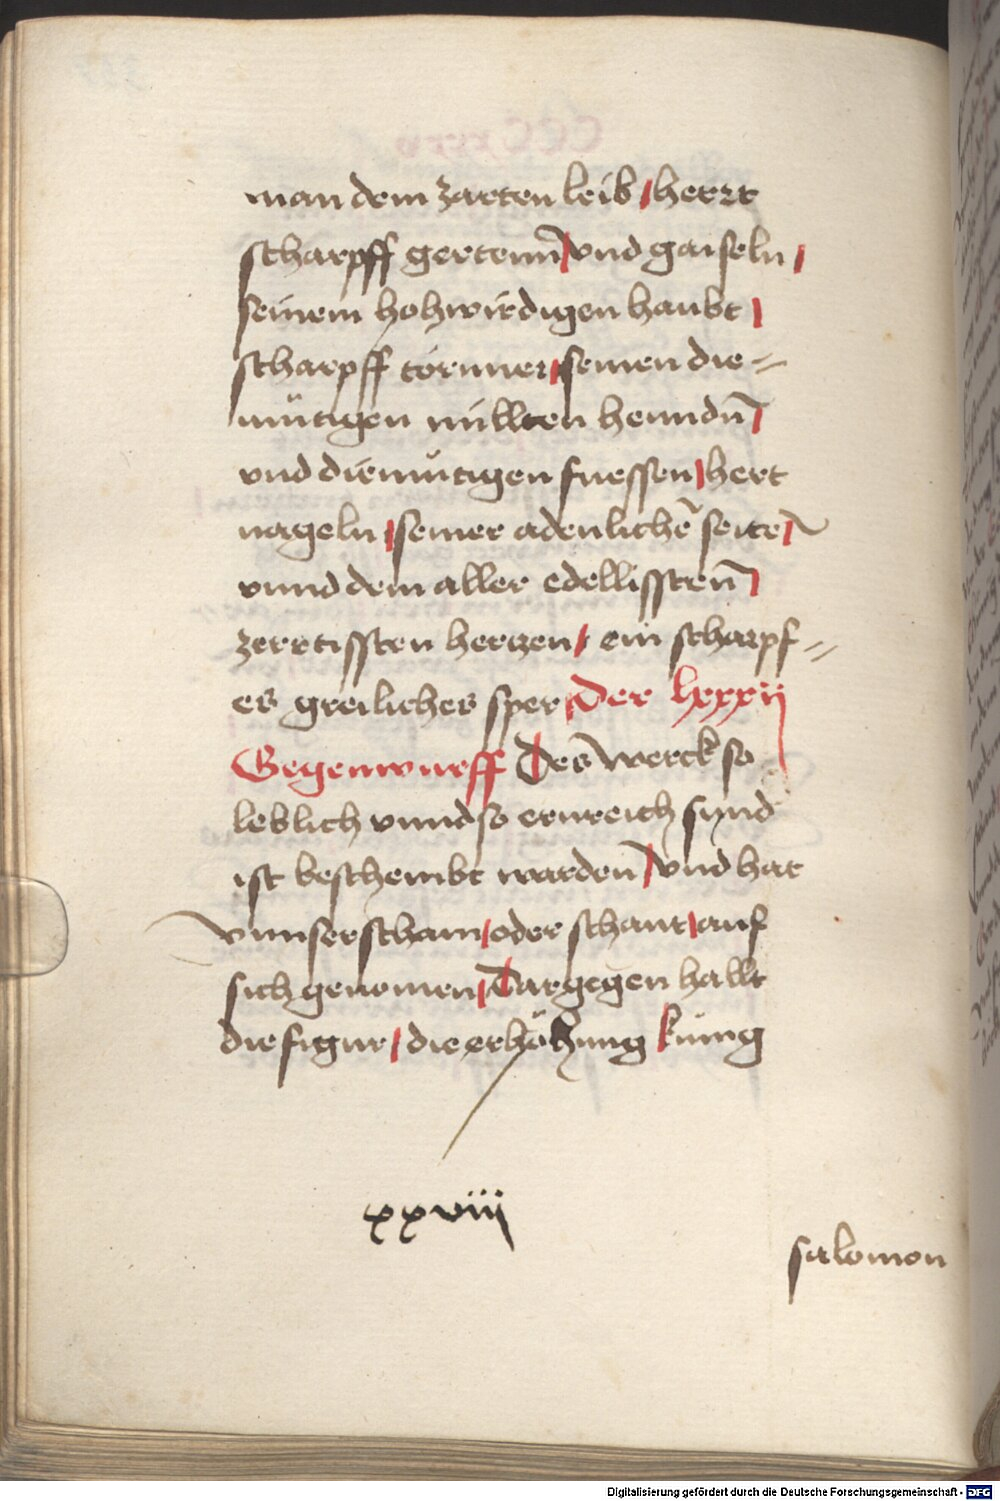 man dem zarten leib / herrt
scharpff gertenn̄ / vnd gaiseln /
seinem hohwirdigen haubt /
scharpff törnner / seinen die=
mütigen millten henndn̄ /
vnd diemütigen fuessen / hert
nageln / seiner adenlichē seiten /
vnnd dem aller edellissten̄ /
zerrtissten hertzen / ein scharpf=
es greiliches sper / Der lxxxij
Gegenwurff Des werck so
leblich vnnd so ernreich sind
ist beschembt warden̄ / vnd hat
vnnser scham / oder schant / auf
sich genomen / Dargegen hallt
die figur / die erhöhung kunig
xxviij
salomon
Digitalisierung gefördert durch die Deutsche Forschungsgemeinschaft - DFG